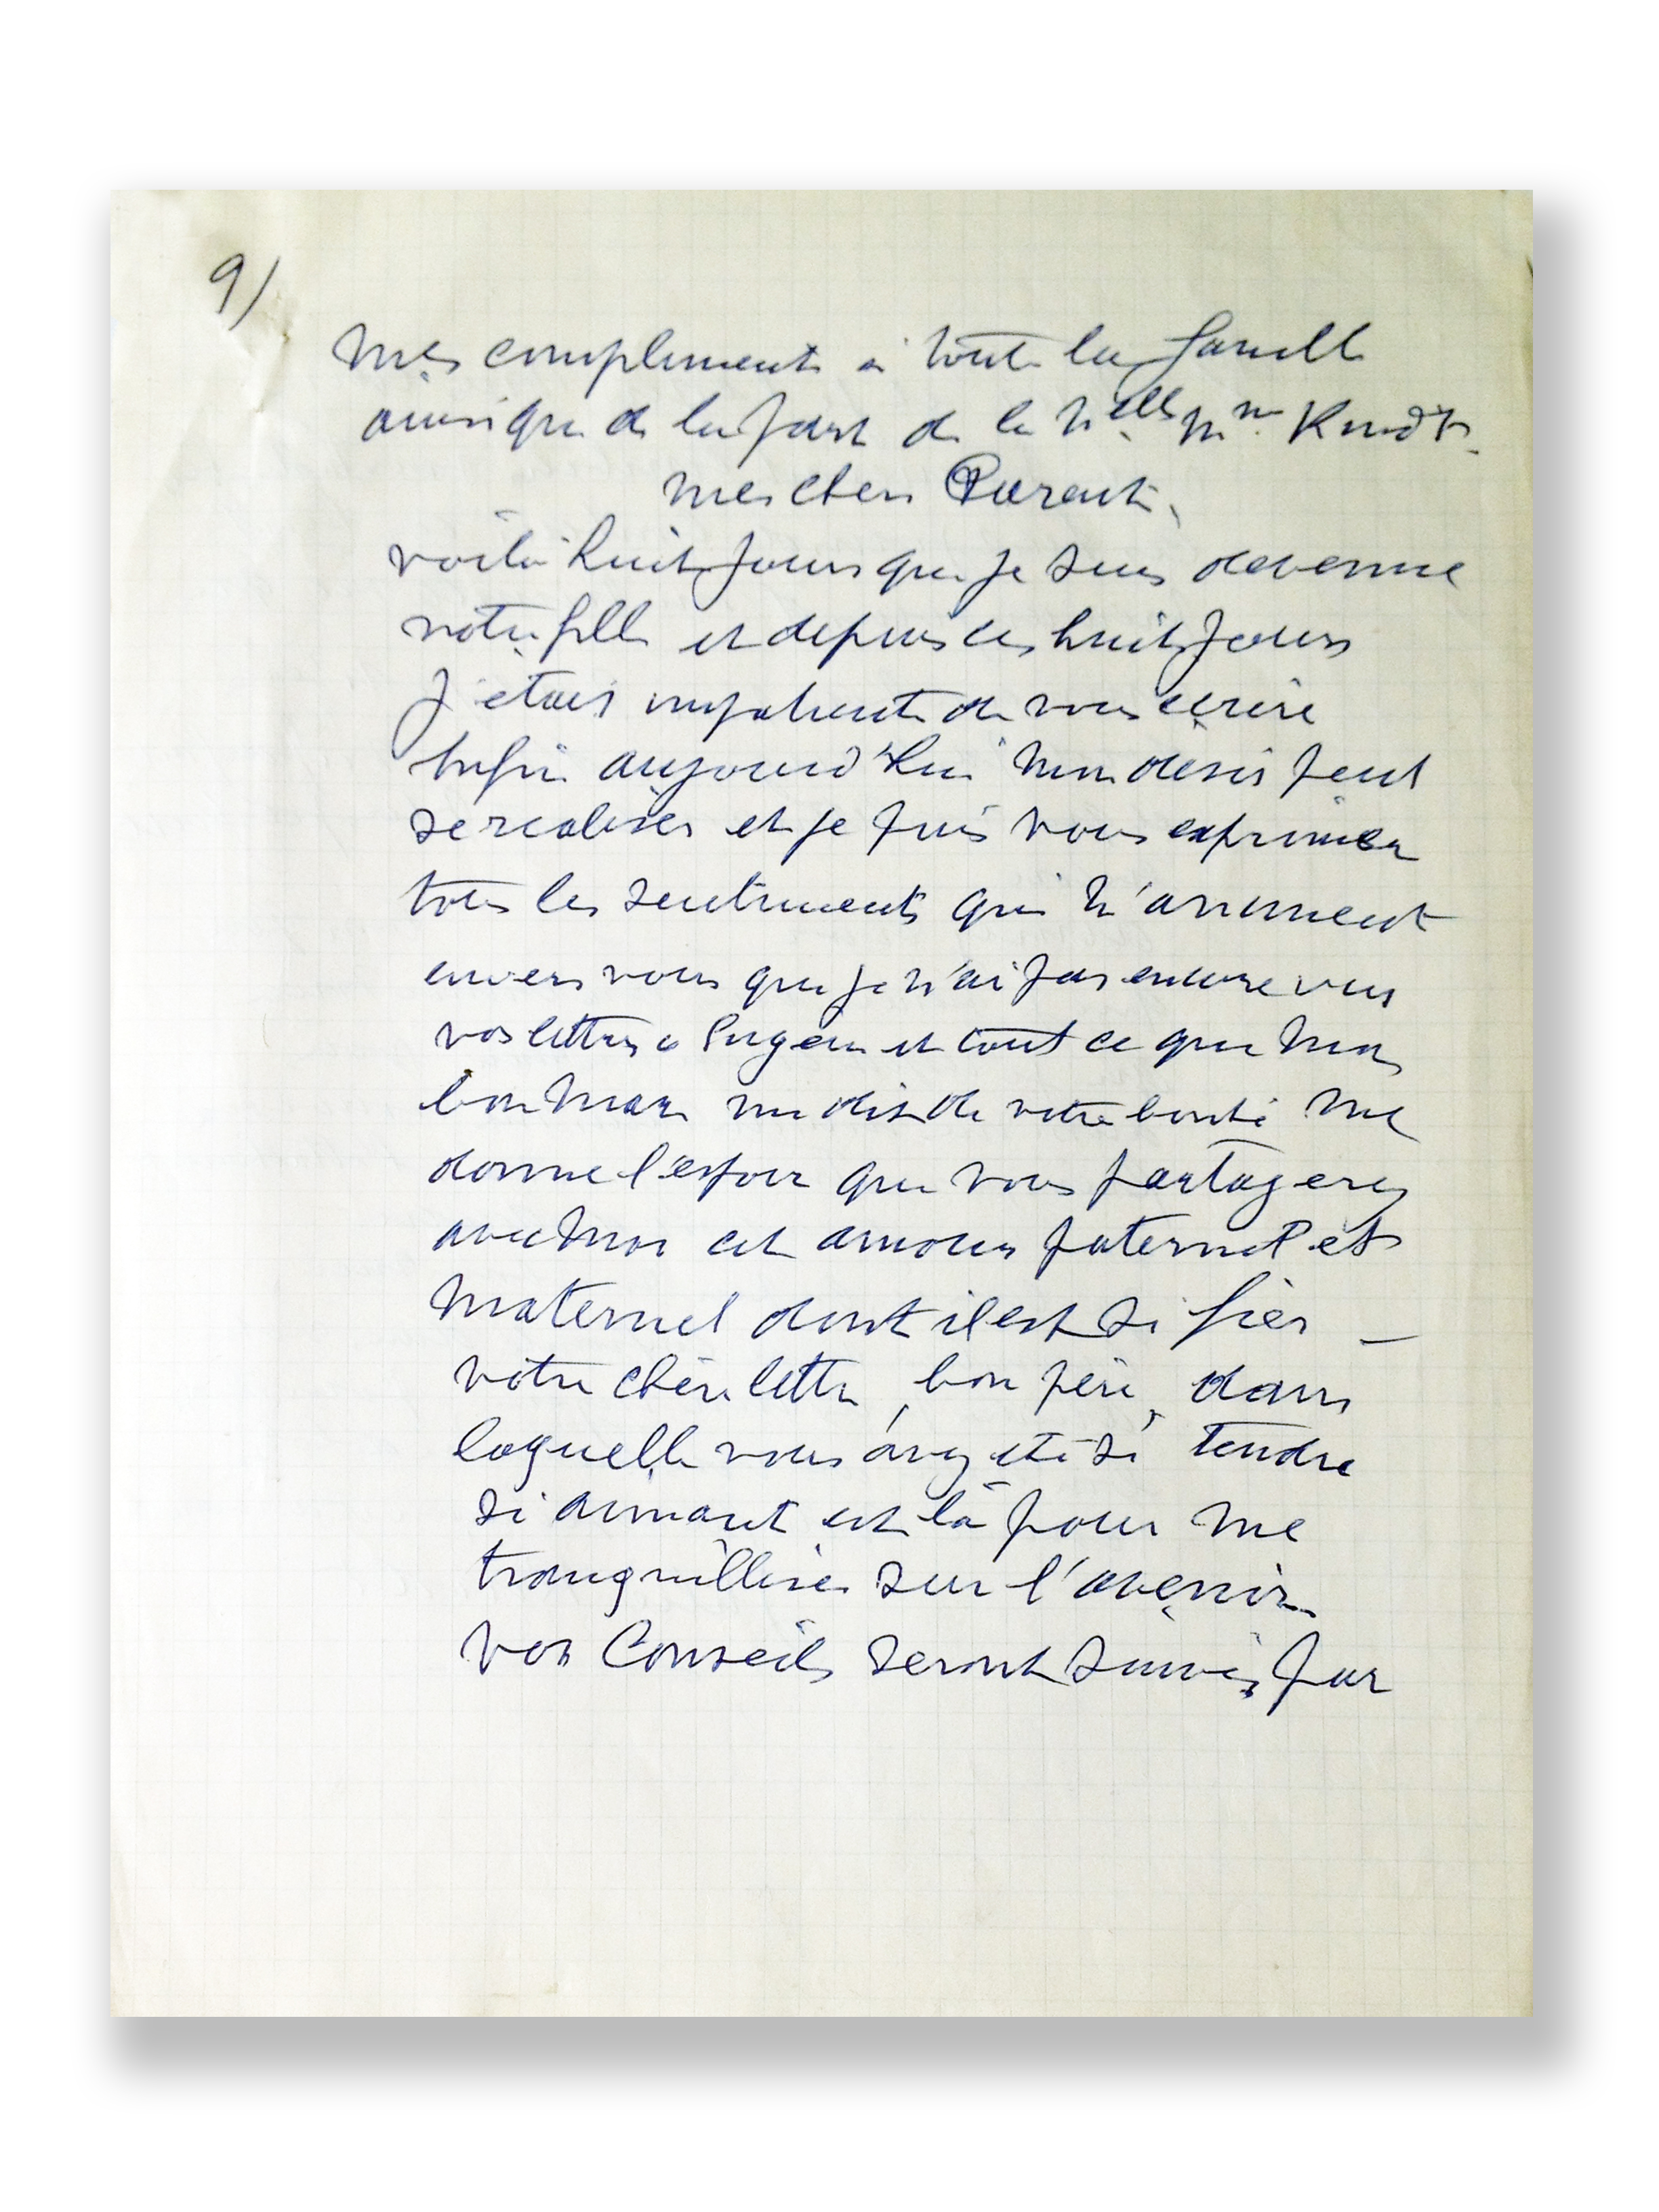 9/
mes compliments à toute la famille
ainsi que de la part de la N.elle Mme
mes chers Parents,
voilà huit jours que je suis devenue
votre fille et depuis ces huit jours
j'étais impatiente de vous écrire
Enfin aujourd'hui mon désir peut
se realiser et je puis vous exprimer
tous les sentiments qui m'animent
envers vous que je n'ai pas encore vus
vos lettres à Eugène et tout ce que mon
bon Mari me dit de votre bonté me
donne l'espoir que vous partagerez
avec moi cet amour paternel et
maternel dont il est si fier –
votre chère lettre, bon père, dans
laquelle vous avez été si tendre
si aimant est là pour me
tranquilliser sur l'avenir.
vos Conseils seront suivis par